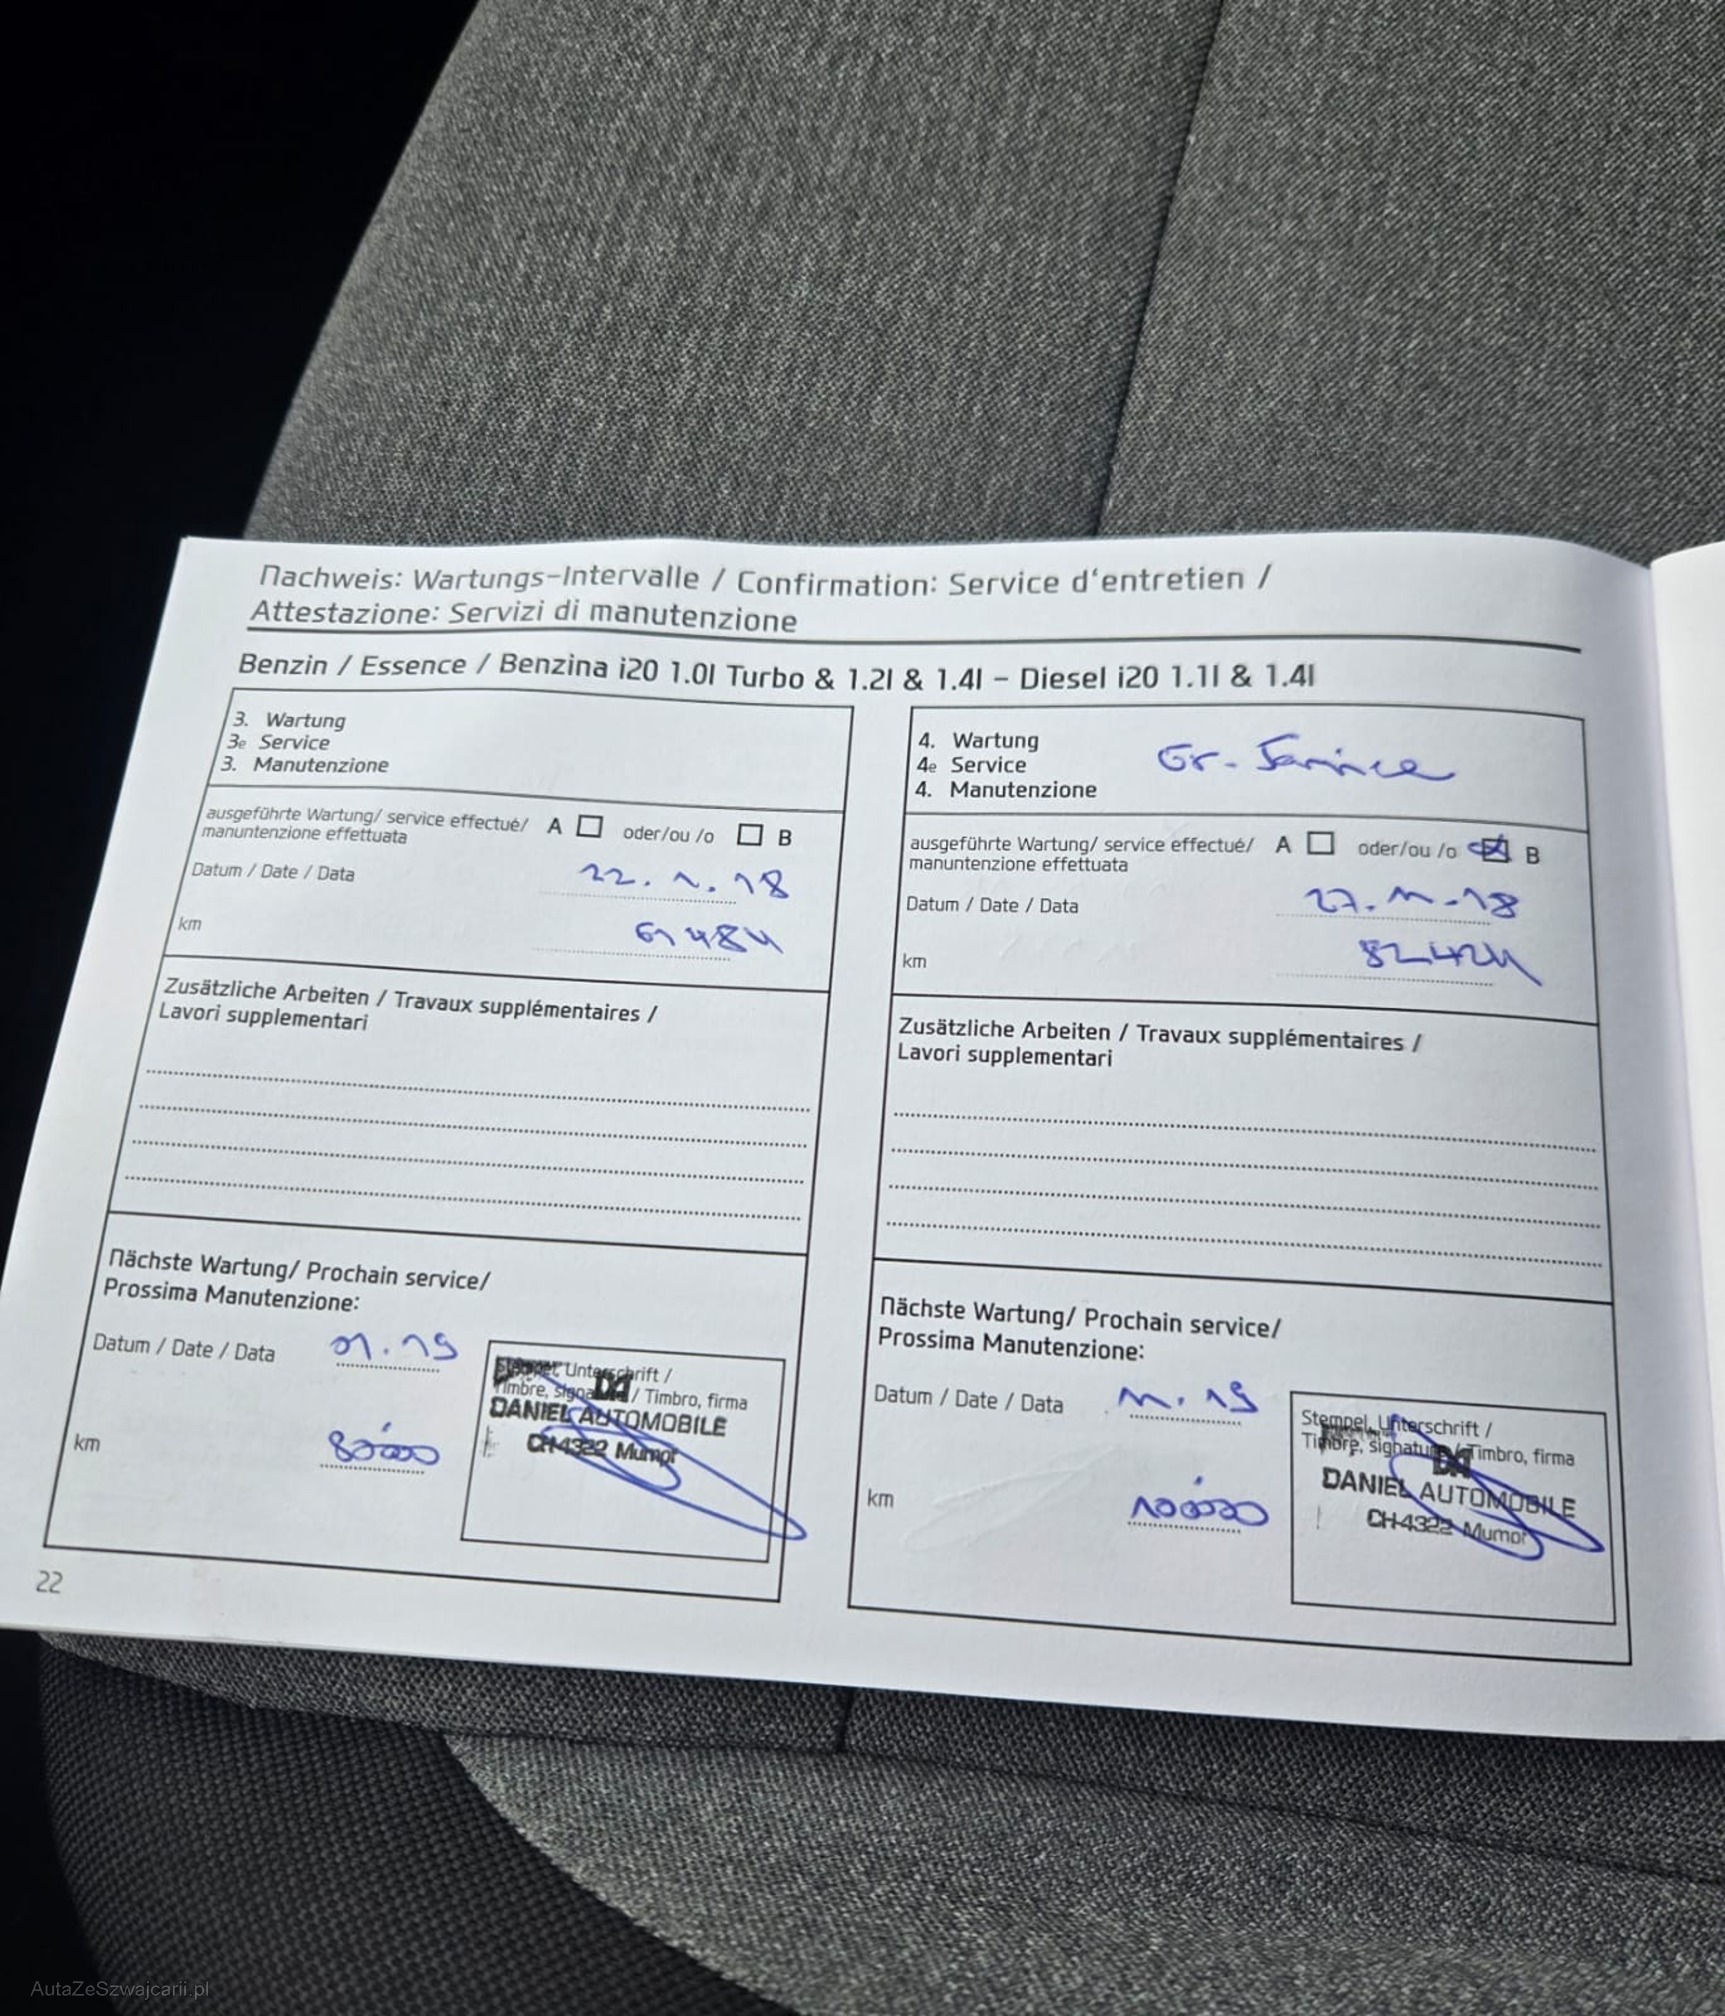 Nachweis: Wartungs-Intervalle / Confirmation: Service d'entretien /
Attestazione: Servizi di manutenzione
Benzin / Essence / Benzina i20 1.0l Turbo & 1.2l & 1.4l – Diesel i20 1.1l & 1.4l
3. Wartung
3e Service
3. Manutenzione
ausgeführte Wartung/ service effectué/ A oder/ou /o B
manuntenzione effettuata
Datum / Date / Data 22.1.18
km
Zusätzliche Arbeiten / Travaux supplémentaires /
Lavori supplementari
Nächste Wartung/ Prochain service/
Prossima Manutenzione:
Datum / Date / Data 01.19
km 80'000
Stempel, Unterschrift /
Timbre, signature / Timbro, firma
DANIEL AUTOMOBILE
CH-4322 Mumpf
22
4. Wartung Gr. Service
4e Service
4. Manutenzione
ausgeführte Wartung/ service effectué/ A oder/ou /o B
manuntenzione effettuata
Datum / Date / Data 27.11.18
km
Zusätzliche Arbeiten / Travaux supplémentaires /
Lavori supplementari
Nächste Wartung/ Prochain service/
Prossima Manutenzione:
Datum / Date / Data 11.19
km 100'000
Stempel, Unterschrift /
Timbre, signature / Timbro, firma
DANIEL AUTOMOBILE
CH-4322 Mumpf
AutaZeSzwajcarii.pl